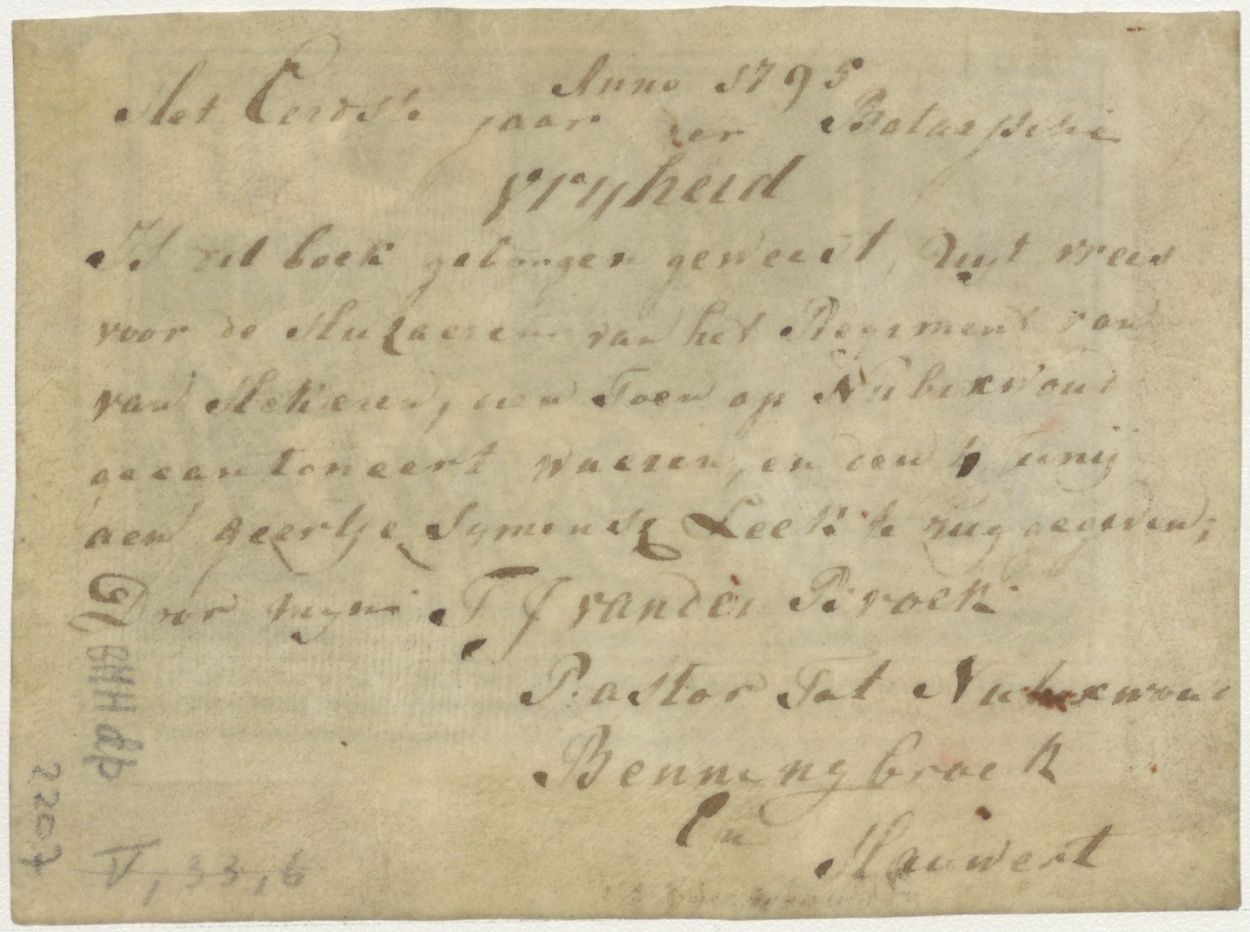 Anno 1795
Het Eerdste jaar der Bataafsche
vryheid
Is dit boek geborgen geweest, Uyt vrees
voor de Huzaeren van het Regiment van
van Heheren, die Toen op Nibixwoud
gecantoneert waeren, en den 4 Junij
aen geertje Symensz Leek te rug gegeven;
Door myn T J vander Broek
Pastor Tot Nibixwoud
Benningbroek
En
Hauwert
2207
IV, 33, 6